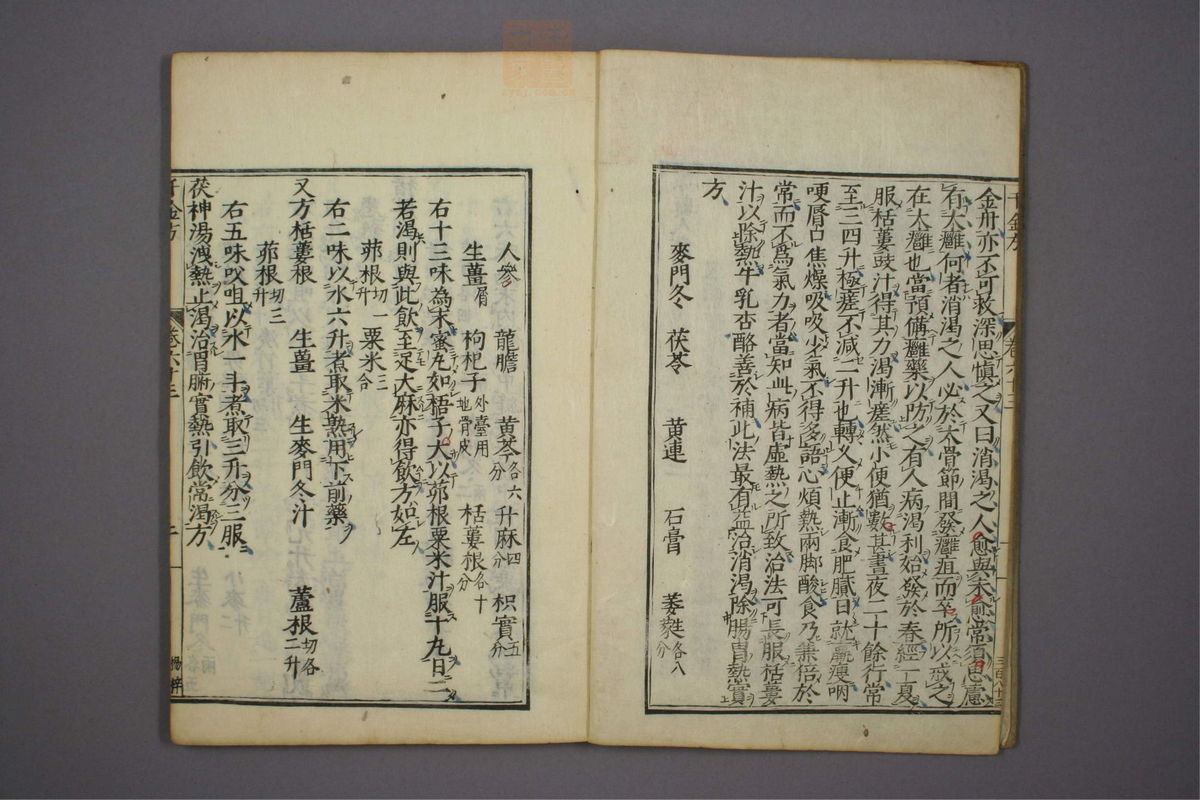 金丹亦不可救深思慎之又曰消渴之人愈與未愈常須思慮
有大癰何者消渴之人必於大骨節間發癰疽而卒所以戒之
在大癰也當預備癰藥以防之有人病渴利始發於春經一夏
服栝蔞豉汁得其力渴漸瘥然小便猶數甚晝夜二十餘行常
至三四升極瘥不減二升也轉久便止漸食肥膩日就羸瘦咽
哽脣口焦燥吸吸少氣不得多語心煩熱兩脚酸食乃兼倍於
常而不爲氣力者當知此病皆虛熱之所致治法可長服栝蔞
汁以除熱牛乳杏酪善於補此法最有益治消渴除腸胃熱實
方
麥門冬 茯苓 黄連 石膏 萎蕤各八分
人參 龍膽 黄芩各六分 升麻四分 枳實五分
生薑屑 枸杞子外臺用地骨皮 栝蔞根各十分
右十三味為末蜜丸如梧子大以茆根粟米汁服十丸日二
若渴則與此飲至足大麻亦得飲方如左
茆根切一升 粟米三合
右二味以水六升煮取米熟用下前藥
又方栝蔞根 生薑 生麥門冬汁 蘆根切各二升
茆根切三升
右五味㕮咀以水一斗煮取三升分三服
茯神湯洩熱止渴治胃腑實熱引飲常渴方